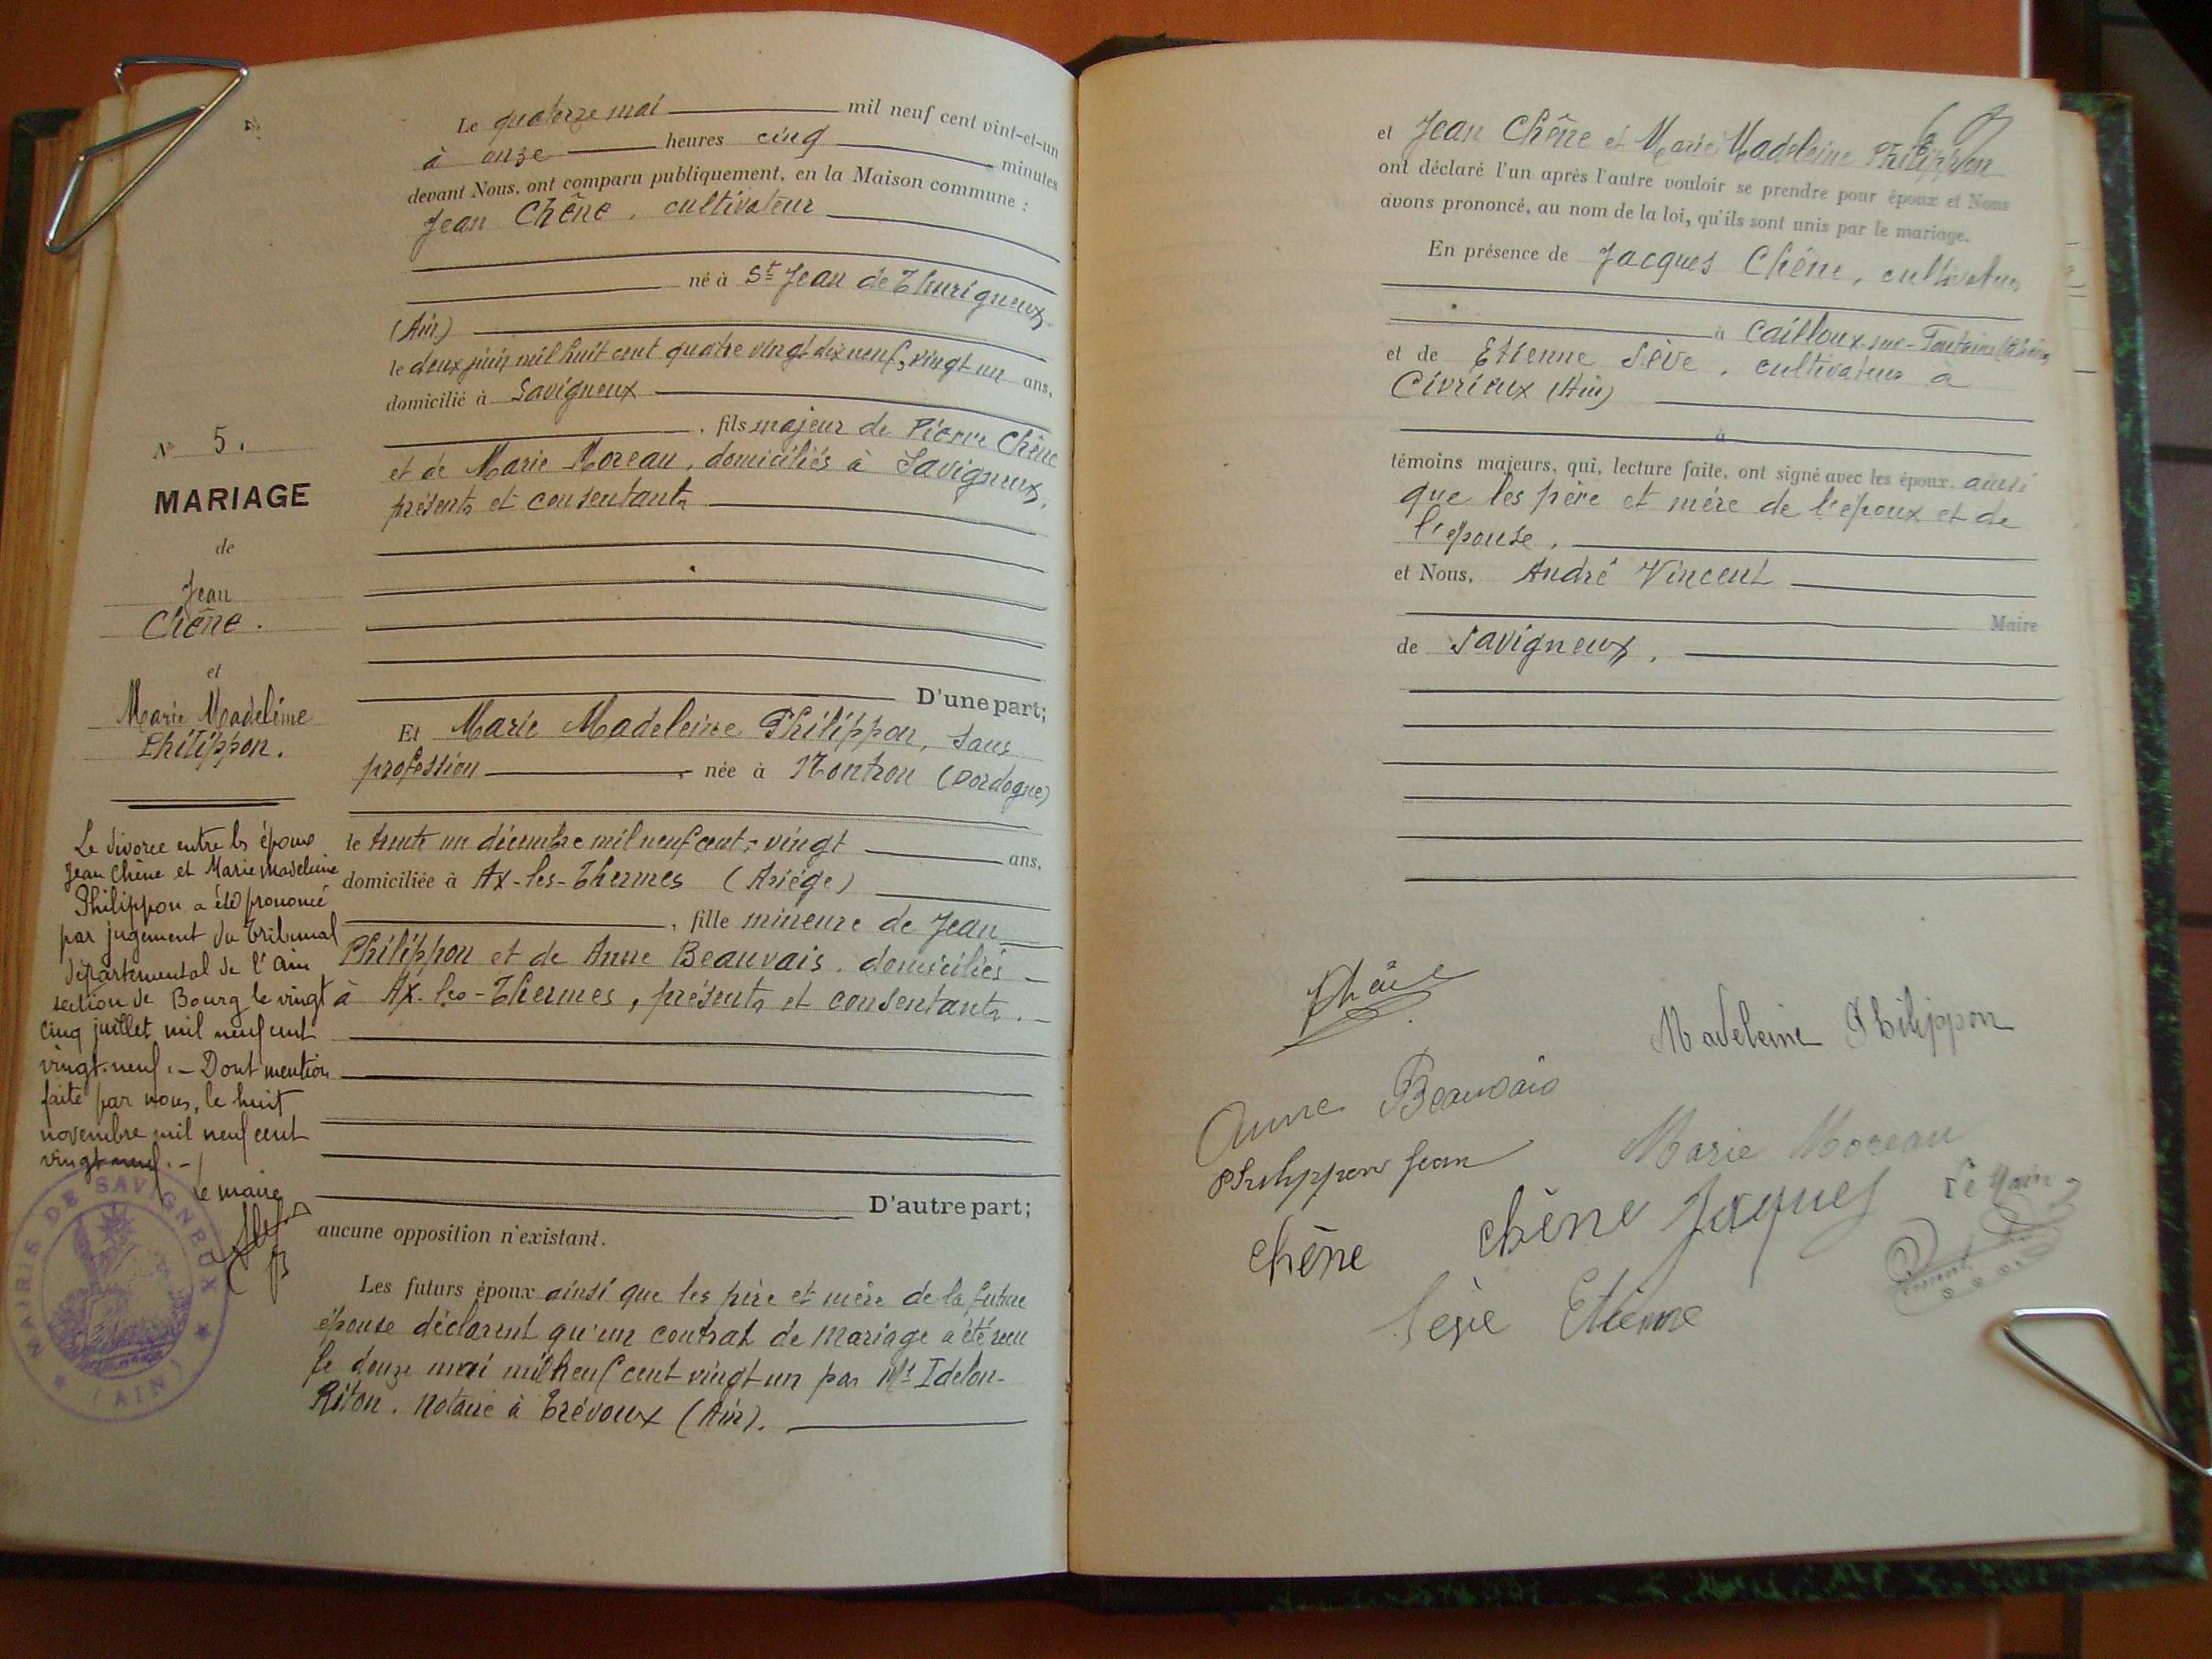 Le quatorze mai mil neuf cent vint-et-un
à onze heures cinq minutes
devant Nous, ont comparu publiquement, en la Maison commune :
Jean Chêne, cultivateur
né à St Jean de Thurigneux
(Ain)
le deux juin mil huit cent quatre vingt dix neuf, vingt un ans,
domicilié à Savigneux
, fils majeur de Pierre Chêne
et de Marie Moreau, domiciliés à Savigneux,
présents et consentants
D'une part;
Et Marie Madeleine Philippon, sans
profession, née à Nontron (Dordogne)
le trente un décembre mil neuf cent, vingt ans,
domiciliée à Ax-les-Thermes (Ariège)
, fille mineure de Jean
Philippon et de Anne Beauvais, domiciliés
à Ax-les-Thermes, présents et consentants.
D'autre part;
aucune opposition n'existant.
Les futurs époux ainsi que les père et mère de la future
épouse déclarent qu'un contrat de mariage a été reçu
le douze mai mil neuf cent vingt un par Me Idelon-
Riton, notaire à Trévoux (Ain).
No 5.
MARIAGE
de
Jean
Chêne.
et
Marie Madeleine
Philippon.
Le divorce entre les époux
Jean Chêne et Marie Madeleine
Philippon a été prononcé
par jugement du Tribunal
départemental de l'Ain
section de Bourg le vingt
cinq juillet mil neuf cent
vingt-neuf. - Dont mention
faite par nous, le huit
novembre mil neuf cent
vingt neuf. -
Le maire
MAIRIE DE SAVIGNEUX
(AIN)
et Jean Chêne et Marie Madeleine Philippon
ont déclaré l'un après l'autre vouloir se prendre pour époux et Nous
avons prononcé, au nom de la loi, qu'ils sont unis par le mariage.
En présence de Jacques Chêne, cultivateur
à Cailloux-sur-Fontaines (Rhône)
et de Etienne Sève, cultivateur à
Civrieux (Ain)
à
témoins majeurs, qui, lecture faite, ont signé avec les époux, ainsi
que les père et mère de l'époux et de
l'épouse,
et Nous, André Vincent
Maire
de Savigneux.
Chêne
Madeleine Philippon
Anne Beauvais
Philippon Jean
Marie Moreau
Chêne
Chêne Jaques
Le Maire
Vincent
Sève Etienne